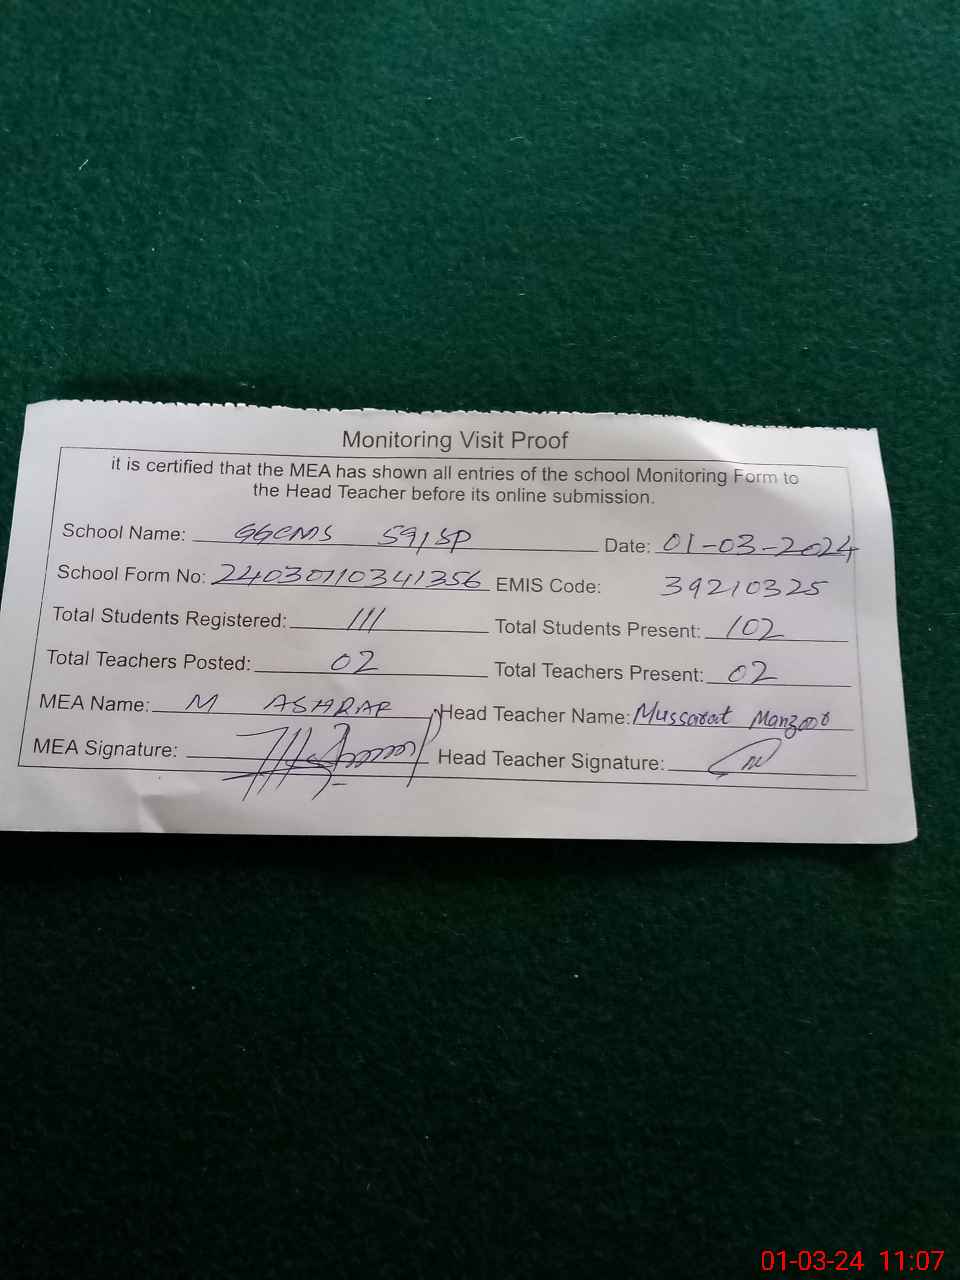 Monitoring Visit Proof
it is certified that the MEA has shown all entries of the school Monitoring Form to
the Head Teacher before its online submission.
School Name: GGCMS 59/SP Date: 01-03-2024
School Form No: 24030710341356 EMIS Code: 39210325
Total Students Registered: 111 Total Students Present: 102
Total Teachers Posted: 02 Total Teachers Present: 02
MEA Name: M ASHRAF Head Teacher Name: Mussarat Manzoor
MEA Signature: Head Teacher Signature:
01-03-24 11:07